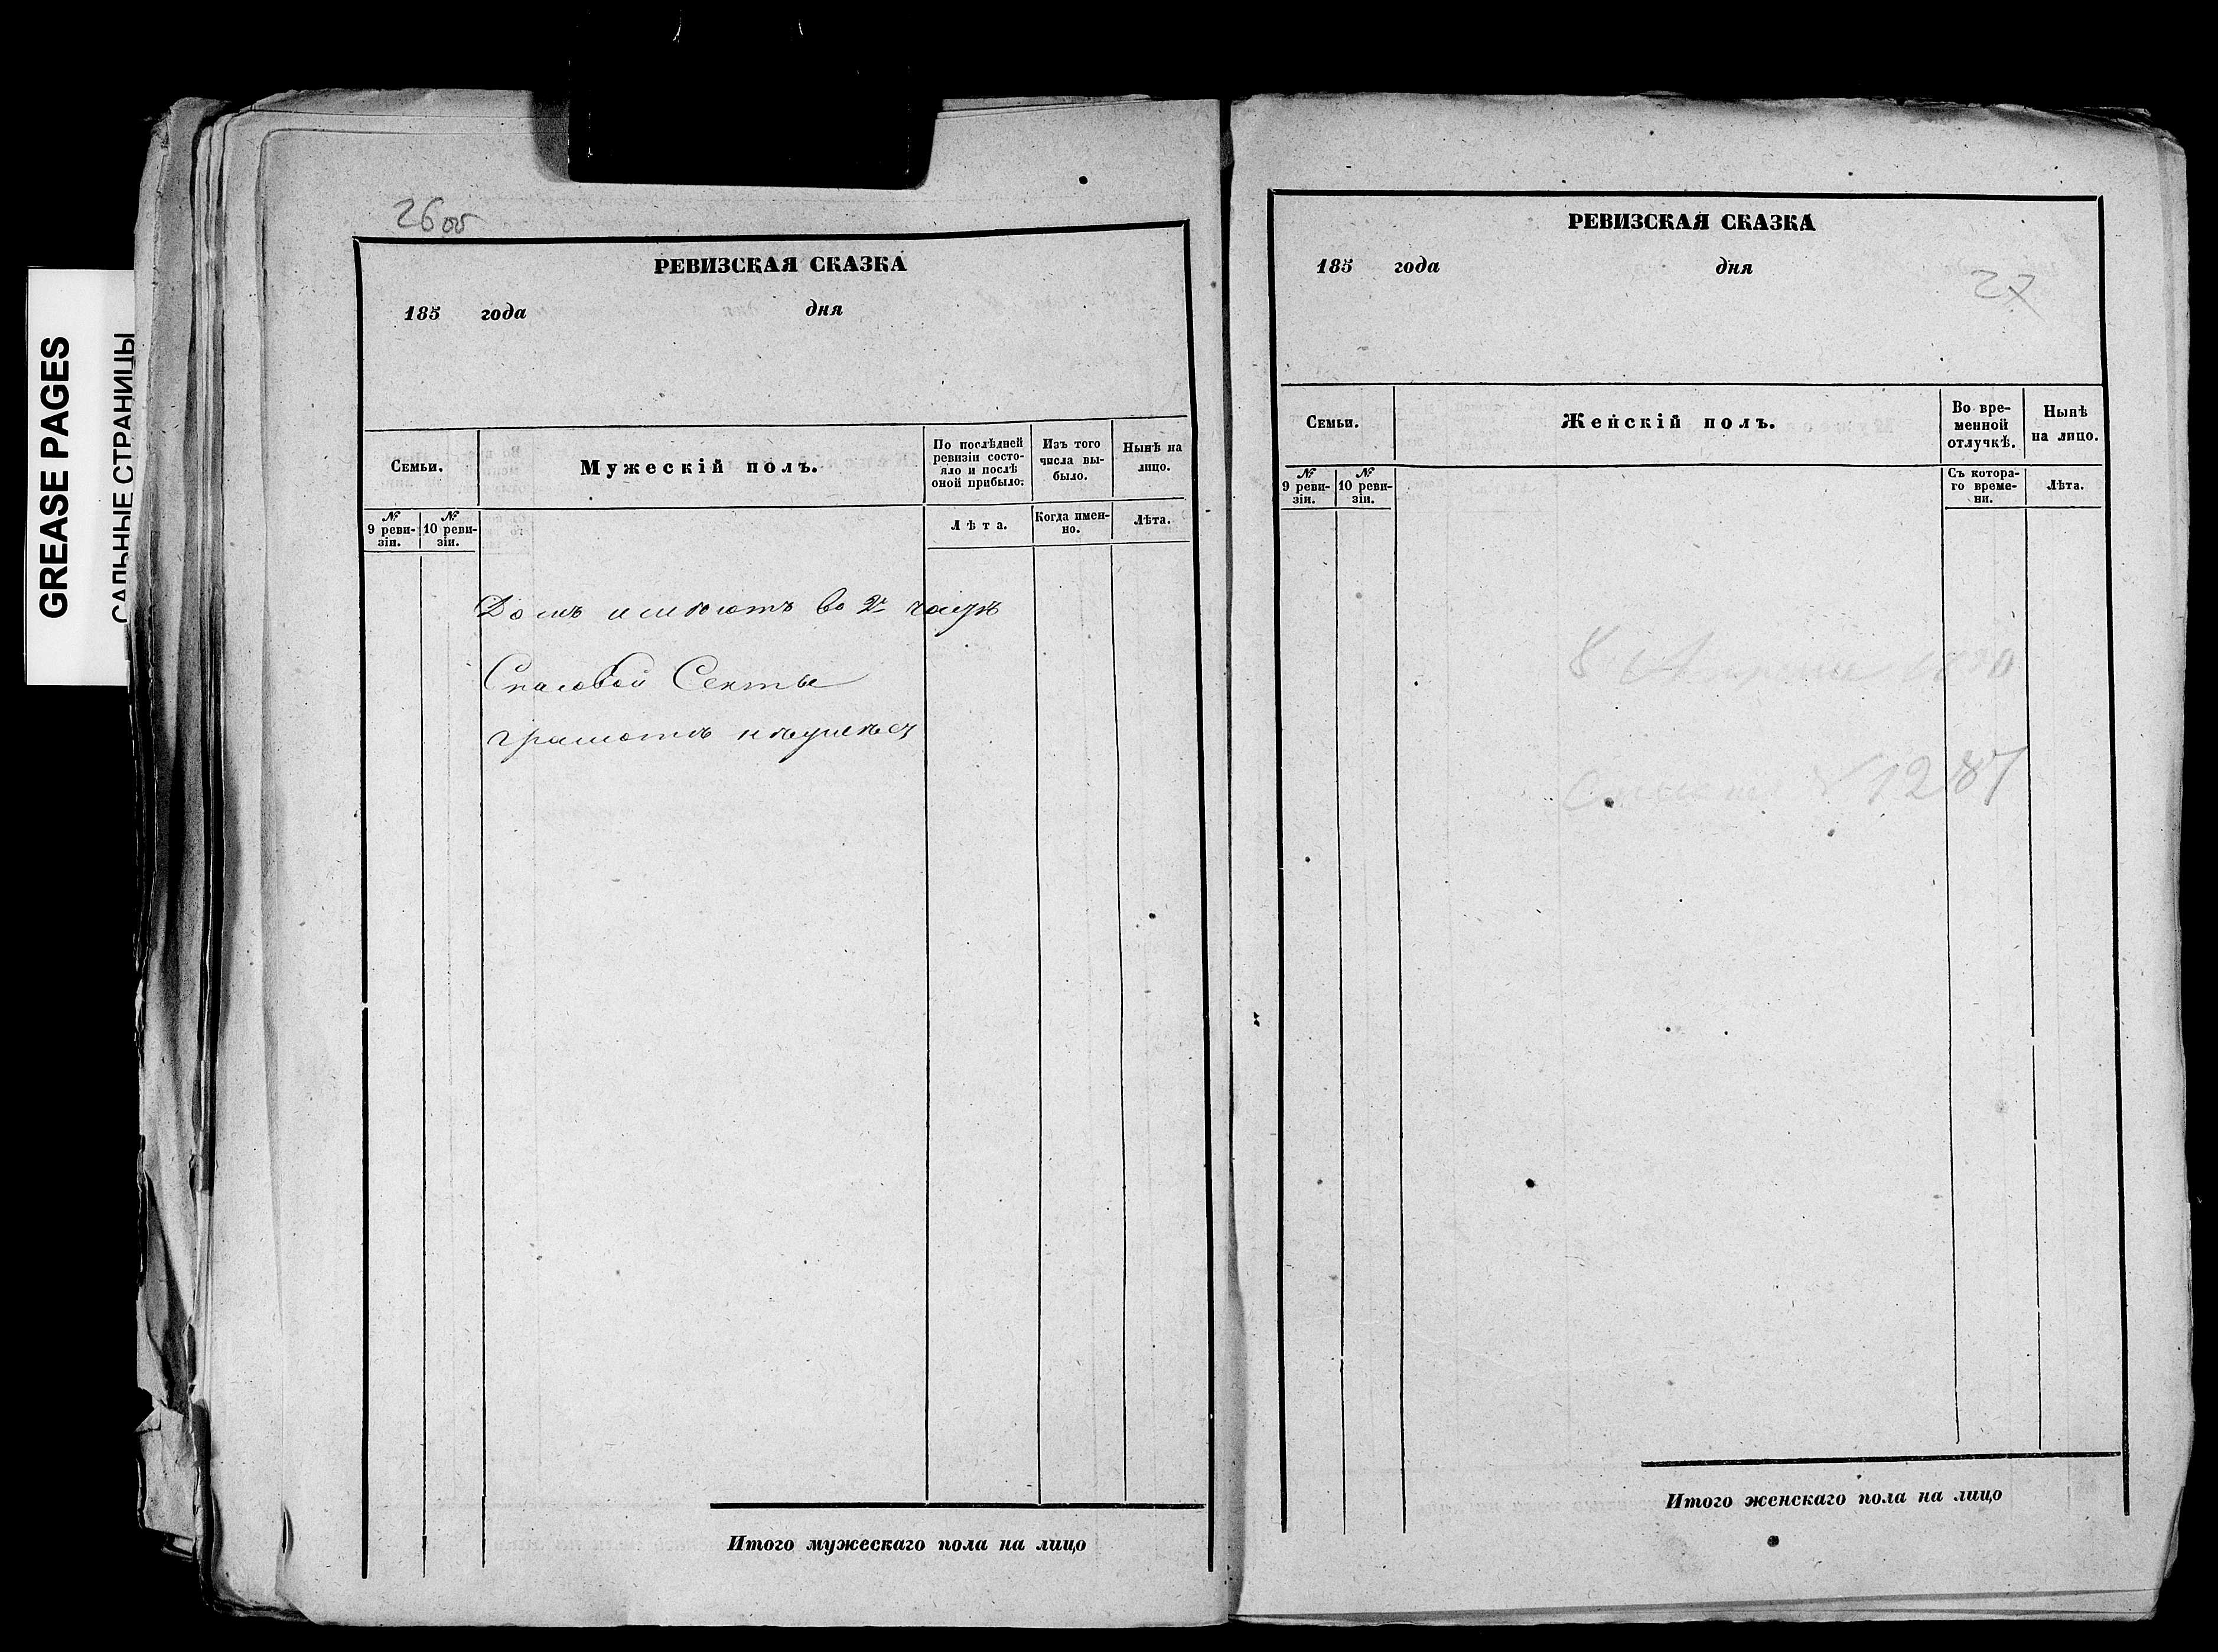 GREASE PAGES
САЛЬНЫЕ СТРАНИЦЫ
26об
РЕВИЗСКАЯ СКАЗКА
185 года дня
Семьи.
Мужескій полъ.
По послѣдней ревизіи состояло и послѣ оной прибыло.
Изъ того числа выбыло.
Нынѣ на лицо.
№ 9 ревизіи.
№ 10 ревизіи.
Лѣта.
Когда именно.
Лѣта.
Домъ имѣютъ во 2й части
Спасовой Секты
грамотѣ
Итого мужескаго пола на лицо
РЕВИЗСКАЯ СКАЗКА
185 года дня
27
Семьи.
Женскій полъ.
Во временной отлучкѣ.
Нынѣ на лицо.
№ 9 ревизіи.
№ 10 ревизіи.
Съ котораго времени.
Лѣта.
8
1287
Итого женскаго пола на лицо